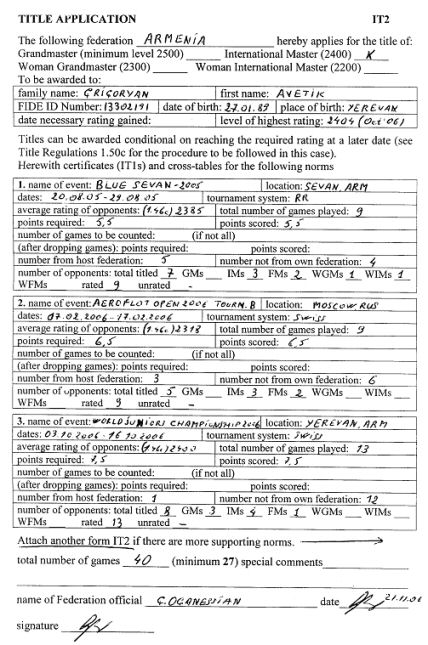 TITLE APPLICATION IT2
The following federation ARMENIA hereby applies for the title of:
Grandmaster (minimum level 2500) International Master (2400) X
Woman Grandmaster (2300) Woman International Master (2200)
To be awarded to:
family name: GRIGORYAN first name: AVETIK
FIDE ID Number: 13302191 date of birth: 27.01.89 place of birth: YEREVAN
date necessary rating gained: level of highest rating: 2404 (Oct '06)
Titles can be awarded conditional on reaching the required rating at a later date (see
Title Regulations 1.50c for the procedure to be followed in this case).
Herewith certificates (IT1s) and cross-tables for the following norms
1. name of event: BLUE SEVAN-2005 location: SEVAN, ARM
dates: 20.08.05 - 29.08.05 tournament system: RR
average rating of opponents: (1.46c) 2385 total number of games played: 9
points required: 5,5 points scored: 5,5
number of games to be counted: (if not all)
(after dropping games): points required: points scored:
number from host federation: 5 number not from own federation: 4
number of opponents: total titled 7 GMs IMs 3 FMs 2 WGMs 1 WIMs 1
WFMs rated 9 unrated -
2. name of event: AEROFLOT OPEN 2006 TOURN. B location: MOSCOW, RUS
dates: 07.02.2006 - 17.02.2006 tournament system: Swiss
average rating of opponents: (1.46c) 2318 total number of games played: 9
points required: 6,5 points scored: 6,5
number of games to be counted: (if not all)
(after dropping games): points required: points scored:
number from host federation: 3 number not from own federation: 6
number of opponents: total titled 5 GMs IMs 3 FMs 2 WGMs WIMs
WFMs rated 9 unrated -
3. name of event: WORLD JUNIORS CHAMPIONSHIP 2006 location: YEREVAN, ARM
dates: 03.10.2006 - 16.10.2006 tournament system: Swiss
average rating of opponents: (1.46c) 2400 total number of games played: 13
points required: 7,5 points scored: 7,5
number of games to be counted: (if not all)
(after dropping games): points required: points scored:
number from host federation: 1 number not from own federation: 12
number of opponents: total titled 8 GMs 3 IMs 4 FMs 1 WGMs WIMs
WFMs rated 13 unrated -
Attach another form IT2 if there are more supporting norms.
total number of games 40 (minimum 27) special comments
name of Federation official G. OGANESSIAN date 21.11.06
signature